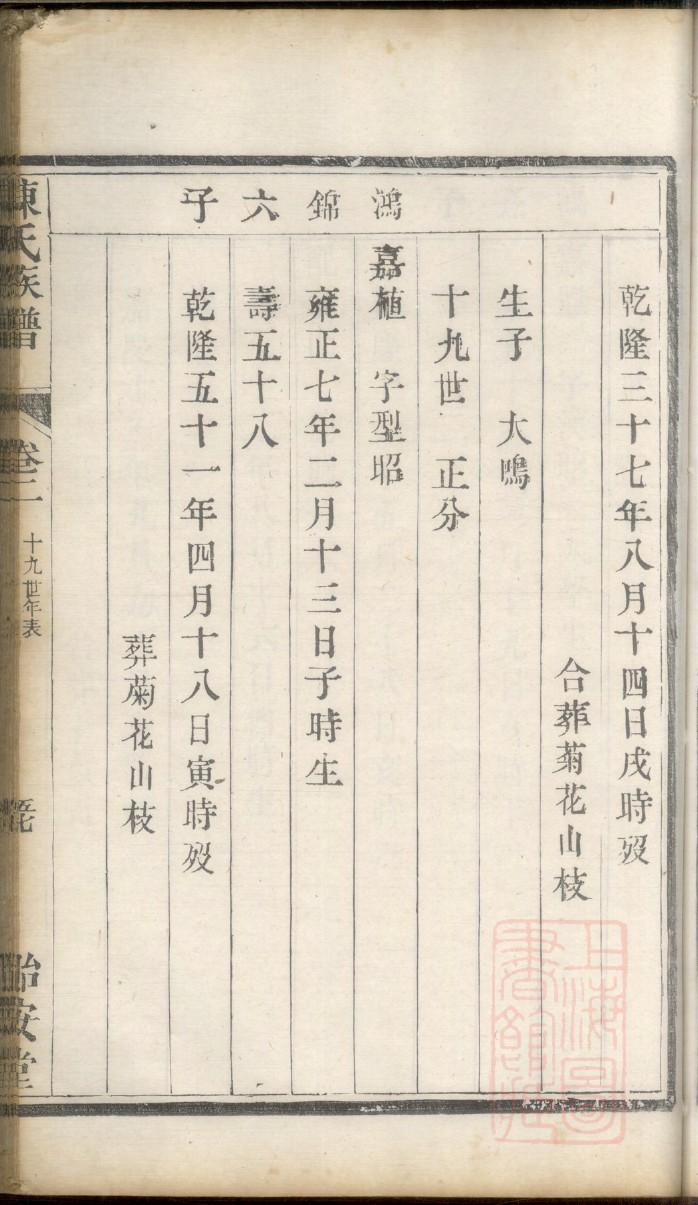 乾隆三十七年八月十四日戌時歿
合葬菊花山枝
生子 大鳴
十九世 正分
鴻 嘉植 字型昭
錦 雍正七年二月十三日子時生
六 壽五十八
子 乾隆五十一年四月十八日寅時歿
葬菊花山枝
陳氏族譜 卷二 十九世年表 怡安堂
上海圖書館藏